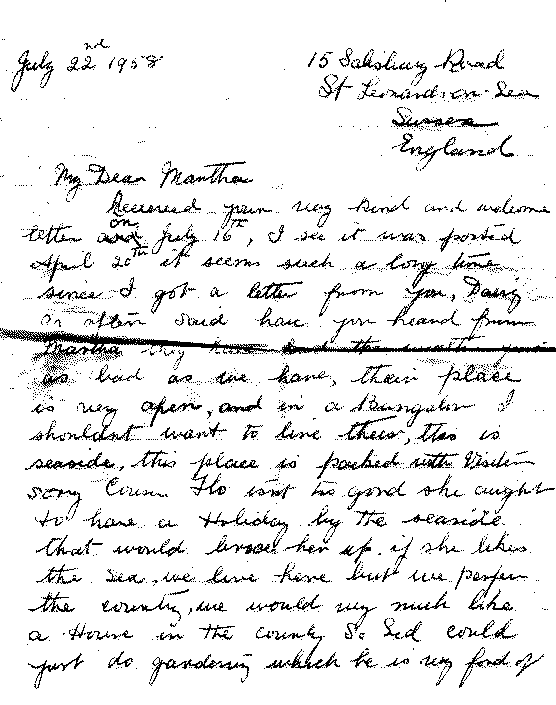 July 22nd 1958
15 Salisbury Road
St Leonards-on-Sea
Sussex
England
My Dear Martha
Received your very kind and welcome
letter on July 16th, I see it was posted
April 20th it seems such a long time
since I got a letter from you, Daisy
as often said have you heard from
Martha they have had the
as bad as we have, their place
is very open, and in a Bungalow I
shouldnt want to live there, this is
seaside, this place is packed with Visitors
sorry Cousin Flo isnt to good she aught
to have a Holiday by the seaside
that would brace her up. if she likes
the Sea, we live here but we perfer
the country, we would very much like
a House in the country So Sid could
just do gardening which he is very fond of